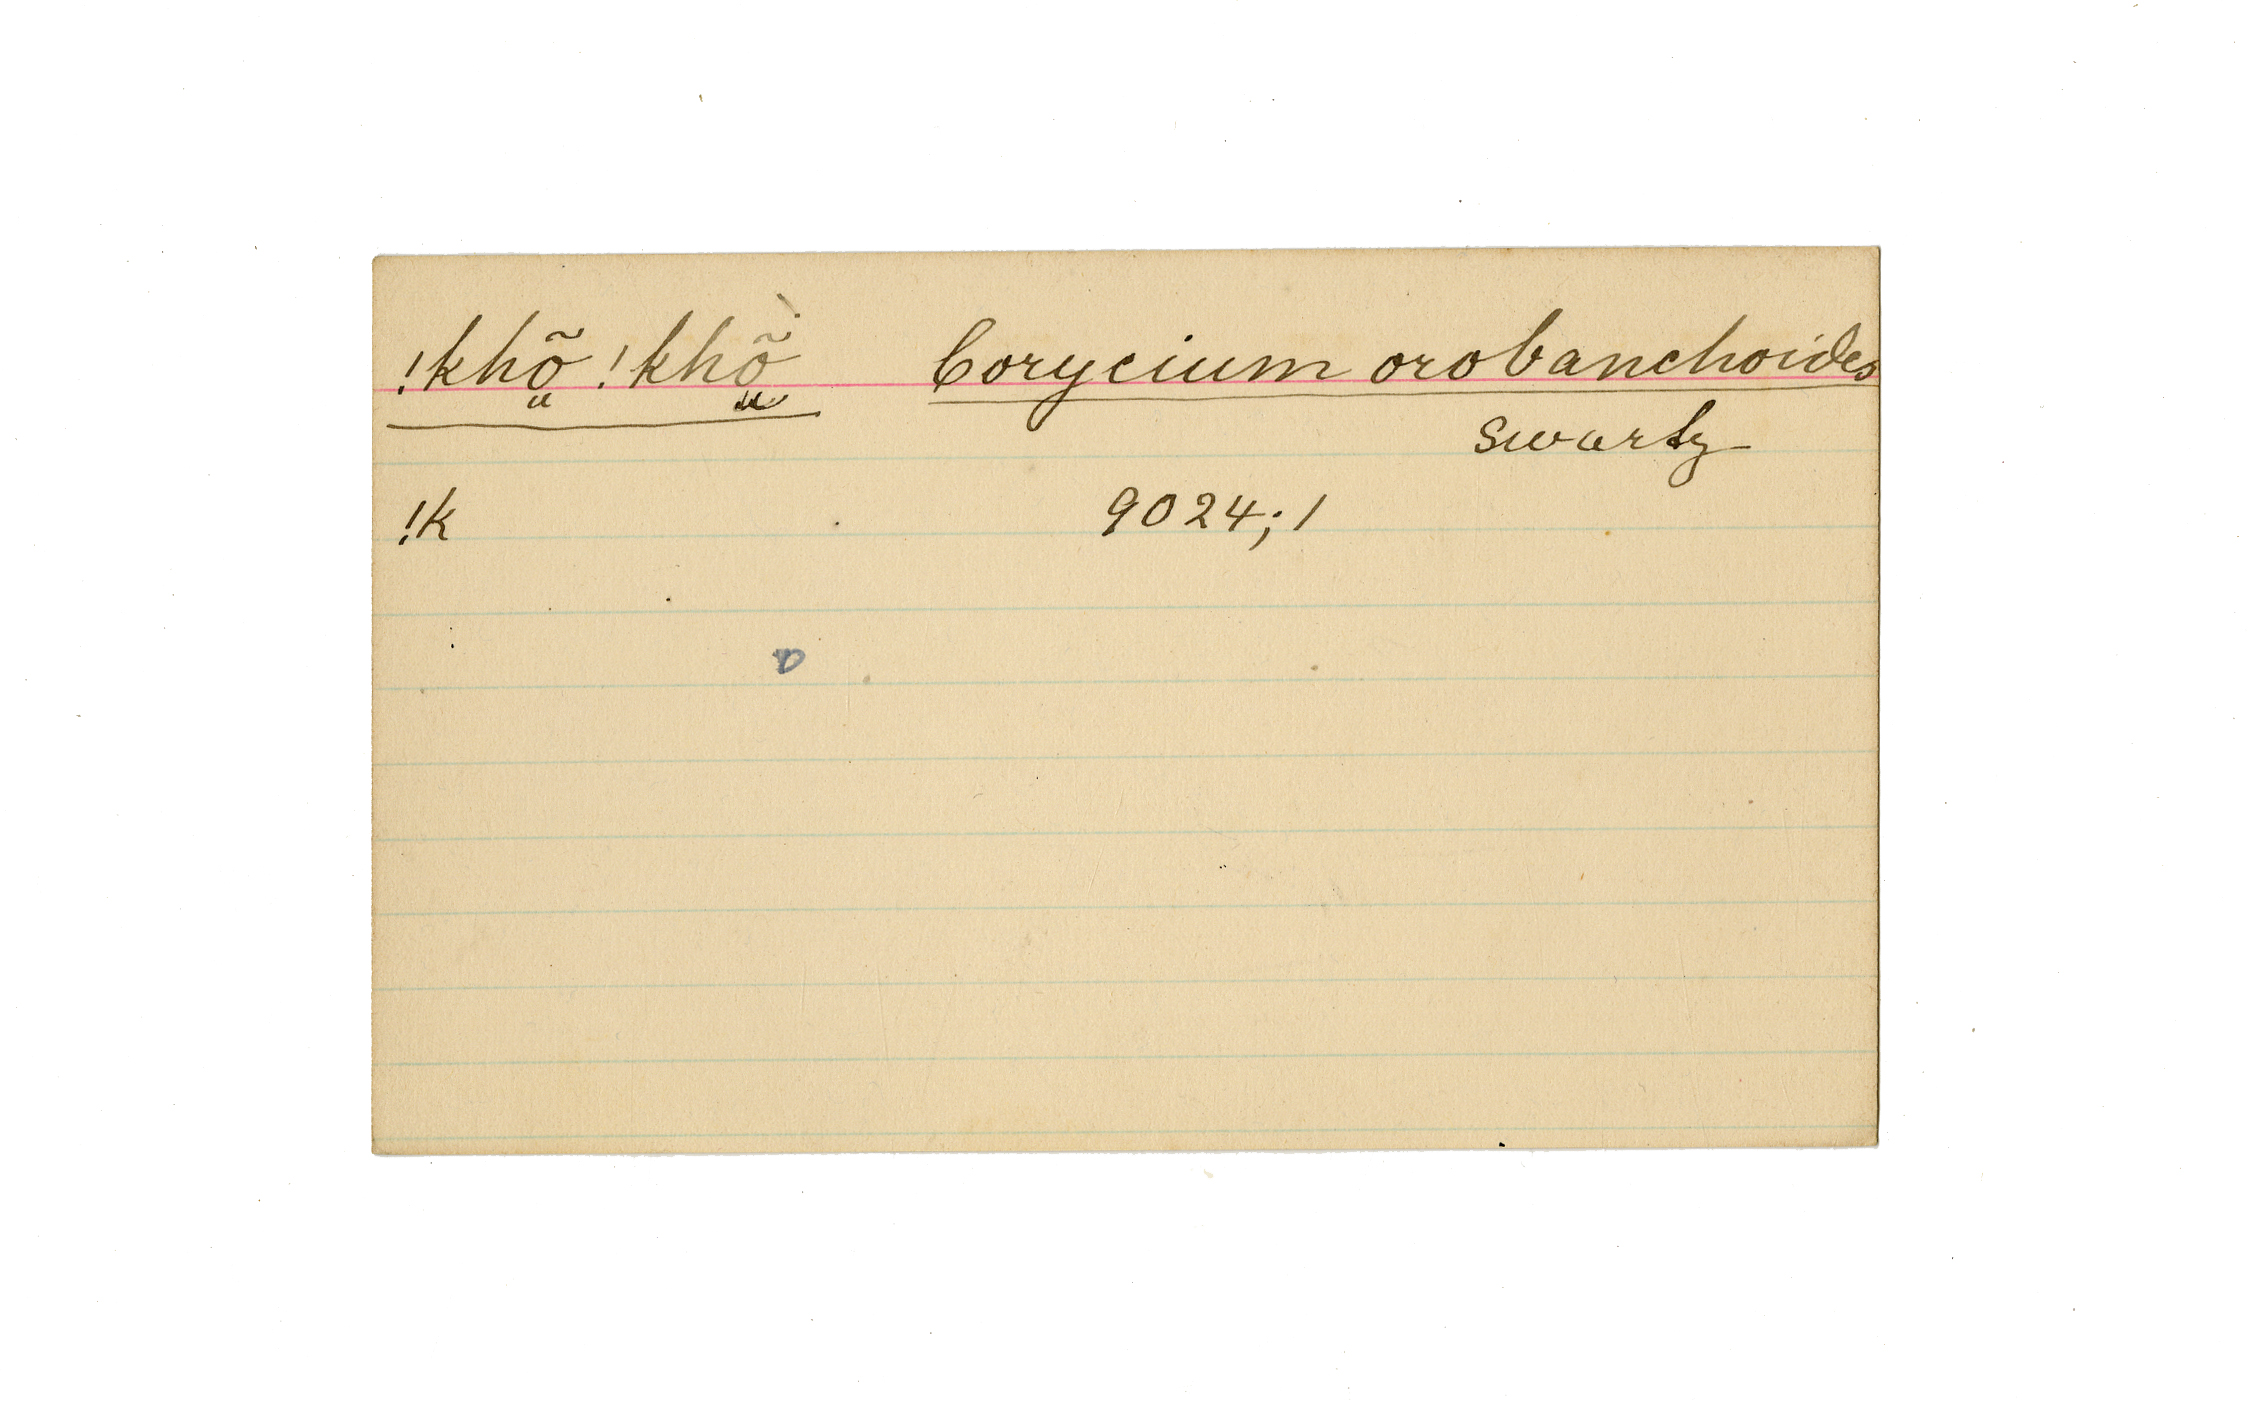 !khõ̤ !khõ̤̀ Corycium orobanchoides
Swartz
!k 9024; 1